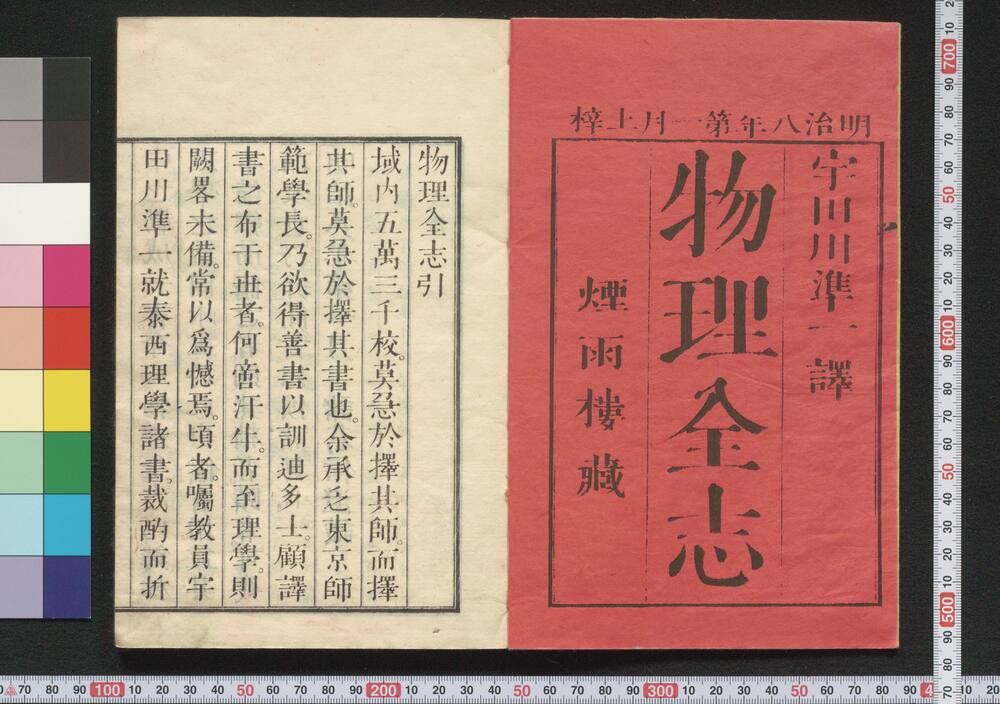 明治八年第一月上梓
宇田川準一譯
物理全志
煙雨樓藏
物理全志引
域内五萬三千校。莫急於擇其師。而擇
其師。莫急於擇其書也。余承乏東京師
範學長。乃欲得善書以訓迪多士。顧譯
書之布于世者。何啻汗牛。而至理學。則
闕畧未備。常以爲憾焉。頃者。囑教員宇
田川準一就泰西理學諸書。裁酌而折